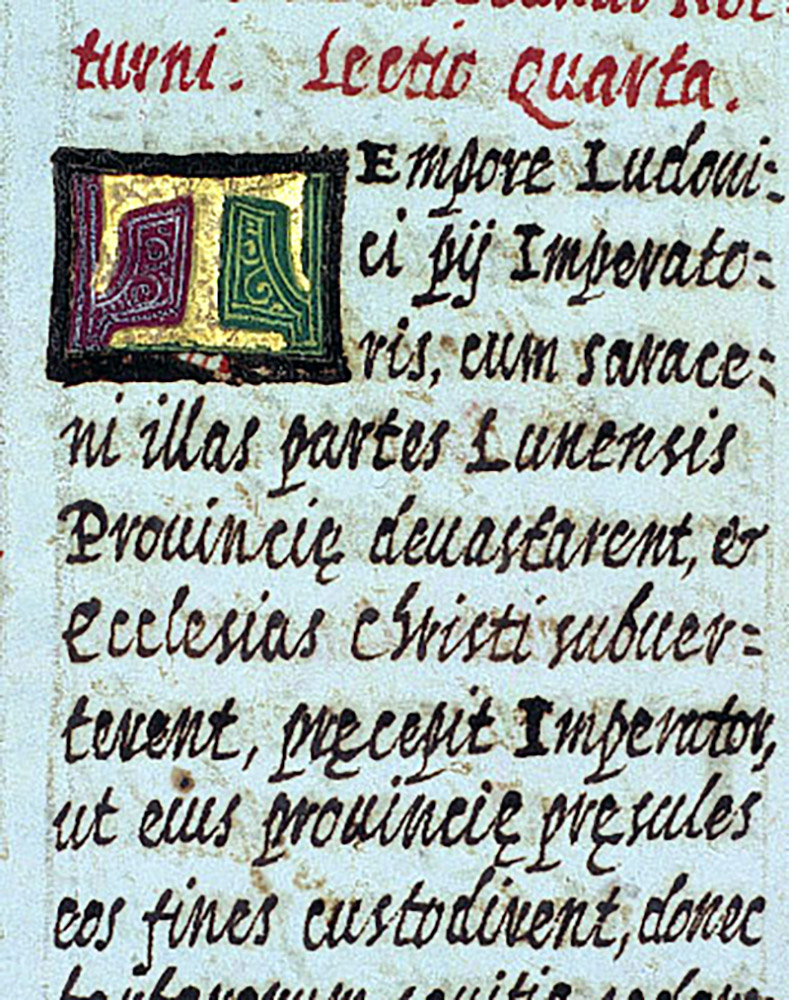 turni. Lectio Quarta.
TEmpore Ludoui=
ci pij Imperato=
ris, cum sarace=
ni illas partes Lunensis
Prouincię deuastarent, &
Ecclesias Christi subuer=
terent, pręcepit Imperator,
ut eius prouincię pręsules
eos fines custodirent, donec